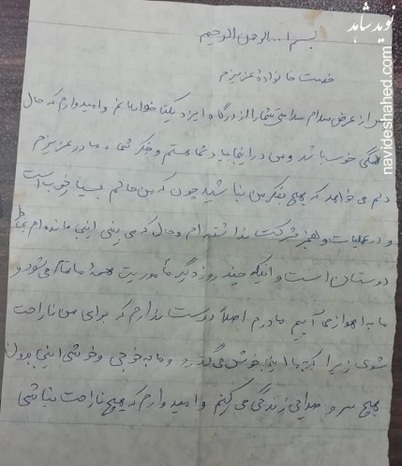 نوید شاهد
navideshahed.com
بسم الله الرحمن الرحیم
خدمت خانوادهٔ عزیزم
پس از عرض سلام سلامتی شما را از درگاه ایزد یکتا خواهانم و امیدوارم که حال
همگی خوب باشد و من در اینجا به یاد شما هستم و بفکر شما، مادر عزیزم
دلم می‌خواهد که هیچ بفکر من نباشید چون که من حالم بسیار خوب است
و در عملیات هم شرکت نداشته‌ام و حال که می‌بینی اینجا مانده‌ام بخاطر
دوستان است و اینکه چند روز دیگر مأموریت همهٔ ما تمام می‌شود و
ما به اهواز می‌آییم مادرم اصلاً دوست ندارم که برای من ناراحت
شوی زیرا که ما اینجا خوش می‌گذرد و ما به خوبی و خوشی اینجا بدون
هیچ سر و صدایی زندگی می‌کنیم و امیدوارم که هیچ ناراحت نباشی